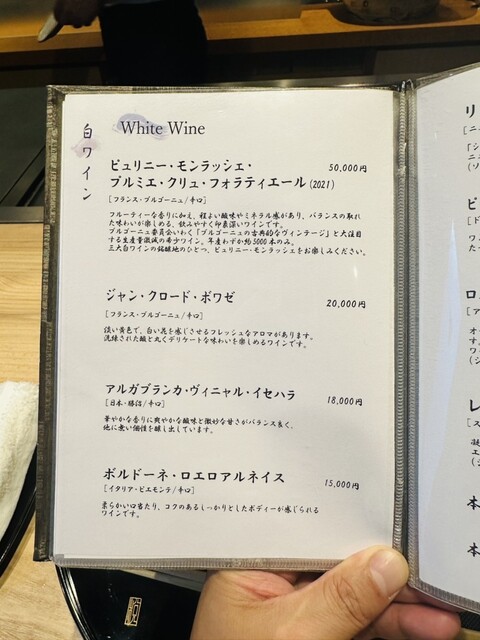 White Wine
白ワイン
ピュリニー・モンラッシェ・
プルミエ・クリュ・フォラティエール(2021)
50,000円
[フランス・ブルゴーニュ/辛口]
フルーティーな香りに加え、程よい酸味やミネラル感があり、バランスの取れ
た味わいが楽しめる、飲みやすく印象深いワインです。
ブルゴーニュ委員会いわく「ブルゴーニュの古典的なヴィンテージ」と大注目
する生産量激減の希少ワイン。年産わずか約5000本のみ。
三大白ワインの銘醸地のひとつ、ピュリニー・モンラッシェをお楽しみください。
ジャン・クロード・ボワゼ
20,000円
[フランス・ブルゴーニュ/辛口]
淡い黄色で、白い花を感じさせるフレッシュなアロマがあります。
洗練された酸と丸くデリケートな味わいを楽しめるワインです。
アルガブランカ・ヴィニャル・イセハラ
18,000円
[日本・勝沼/辛口]
華やかな香りに爽やかな酸味と微妙な甘さがバランス良く、
他に無い個性を醸し出しています。
ボルドーネ・ロエロアルネイス
15,000円
[イタリア・ピエモンテ/辛口]
柔らかい口当たり、コクのあるしっかりとしたボディーが感じられる
ワインです。